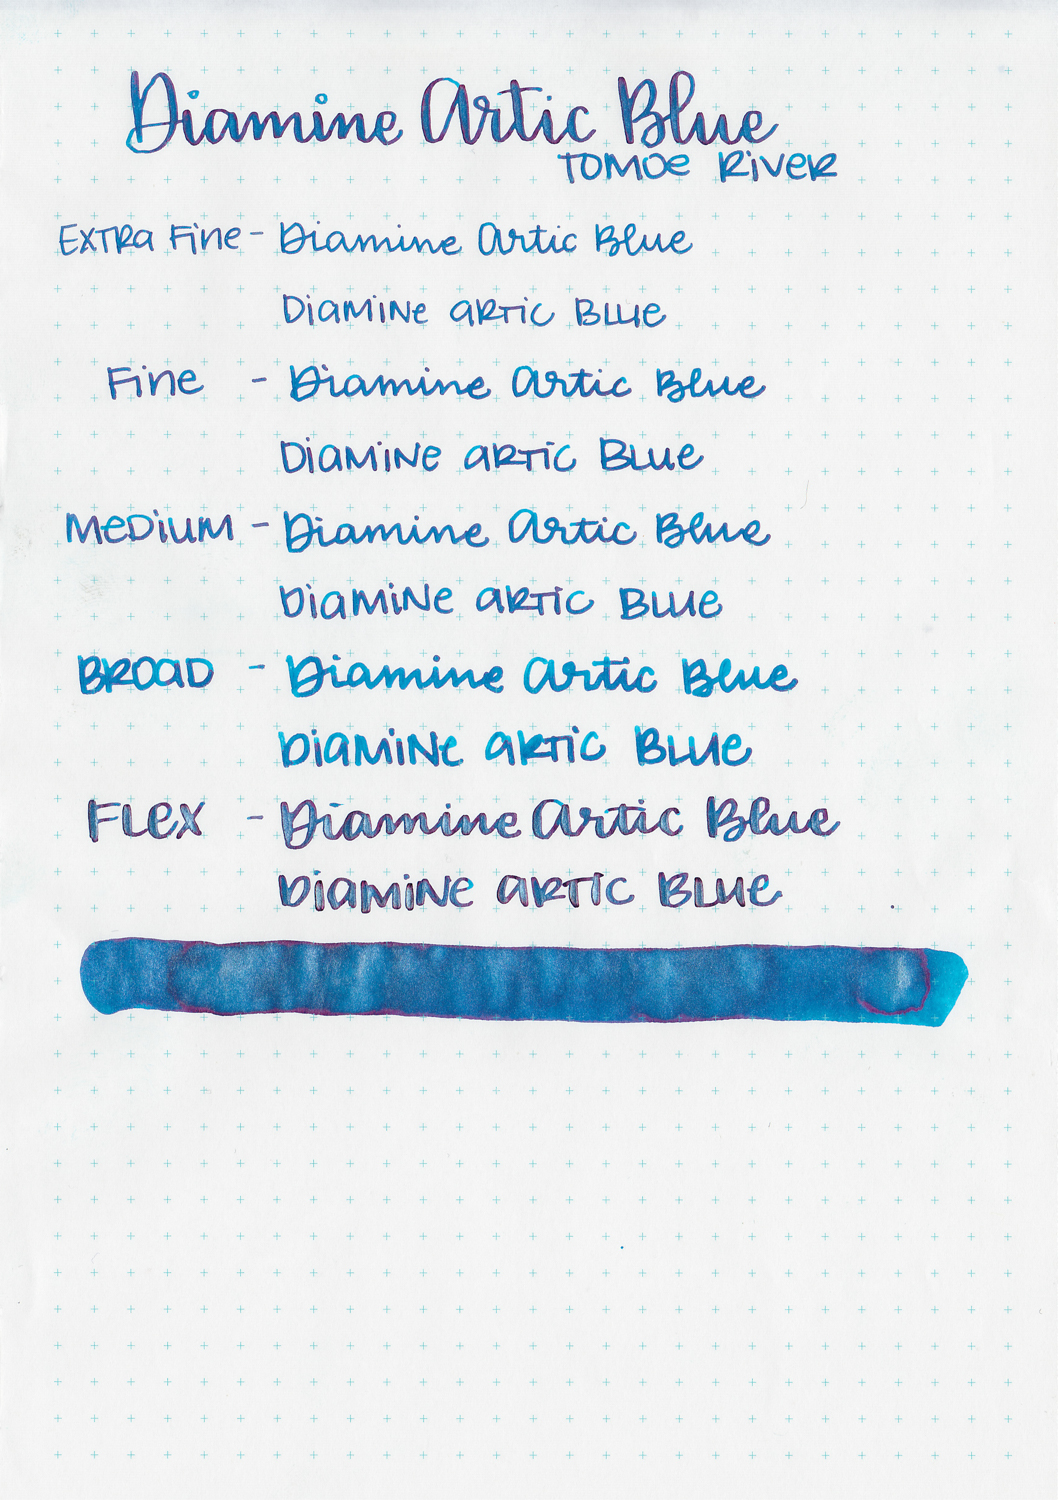 Diamine Artic Blue
TOMOE RIVER
EXTRA Fine - Diamine Artic Blue
DiaMiNe aRTiC BLUe
Fine - Diamine Artic Blue
DiaMiNe aRTiC BLUe
MeDiUM - Diamine Artic Blue
DiaMiNe aRTiC BLUe
BROaD - Diamine Artic Blue
DiaMiNe aRTiC BLUe
FLex - Diamine Artic Blue
DiaMiNe aRTiC BLUe